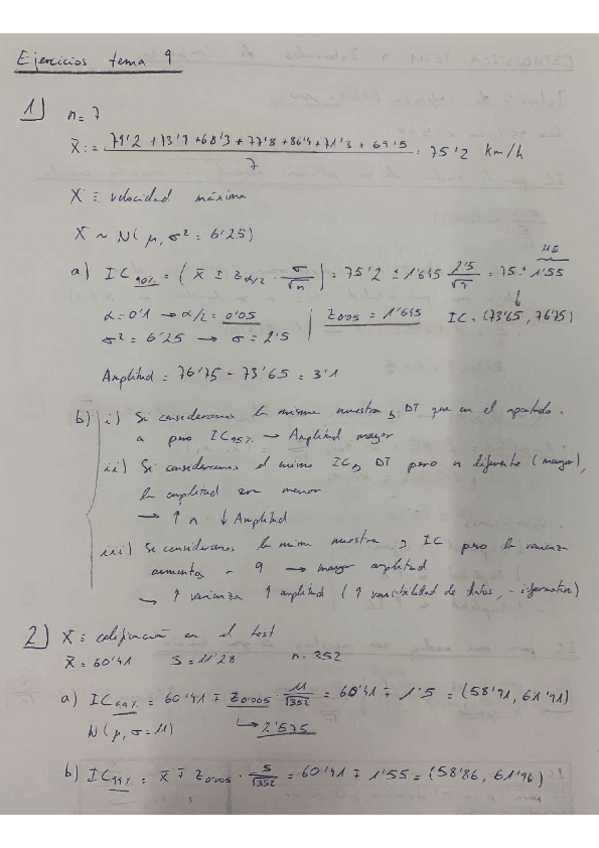 Ejercicios tema 9
1) n = 7
X̄ = 79'2 + 73'9 + 68'3 + 77'8 + 86'4 + 71'3 + 69'5 / 7 = 75'2 km/h
X ≡ velocidad máxima
X ~ N(μ, σ² = 6'25)
a) IC90% = (X̄ ± Zα/2 · σ/√n) = 75'2 ± 1'645 2'5/√7 = 75 ± 1'55 ME
α = 0'1 → α/2 = 0'05 | Z0'05 = 1'645 IC = (73'65, 76'75)
σ² = 6'25 → σ = 2'5
Amplitud = 76'75 - 73'65 = 3'1
b) i) Si consideramos la misma muestra y DT que en el apartado
a pero IC95% → Amplitud mayor
ii) Si consideramos el mismo IC y DT pero n diferente (mayor),
la amplitud menor
→ ↑ n ↓ Amplitud
iii) Si consideramos la misma muestra y IC pero la varianza
aumenta a 9 → mayor amplitud
→ ↑ varianza ↑ amplitud (↑ variabilidad de datos, - informative)
2) X ≡ calificación en el test
X̄ = 60'41 S = 11'28 n = 352
a) IC99% = 60'41 ∓ Z0'005 · 11/√352 = 60'41 ∓ 1'5 = (58'91, 61'91)
N(μ, σ = 11) → 2'575
b) IC99% = X̄ ∓ Z0'005 · S/√352 = 60'41 ∓ 1'55 = (58'86, 61'96)